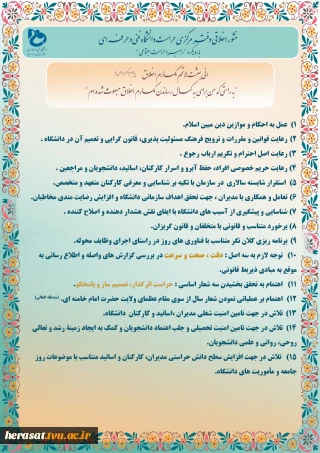 منشور اخلاقی دفتر مرکزی حراست دانشگاه فنی و حرفه ای
انی بعثت لاتمم مکارم الاخلاق
"به راستی که من برای به کمال رساندن مکارم اخلاق مبعوث شده ام"
۱) عمل به احکام و موازین دین مبین اسلام.
۲) رعایت قوانین و مقررات و ترویج فرهنگ مسئولیت پذیری، قانون گرایی و تعمیم آن در دانشگاه .
۳) رعایت اصل احترام و تکریم ارباب رجوع .
۴) رعایت حریم خصوصی افراد، حفظ آبرو و اسرار کارکنان، اساتید، دانشجویان و مراجعین .
۵) استقرار شایسته سالاری در سازمان با تکیه بر شناسایی و معرفی کارکنان متعهد و متخصص.
۶) تعامل و همکاری با مدیران ، جهت تحقق اهداف سازمانی دانشگاه و افزایش رضایت مندی مخاطبان.
۷) شناسایی و پیشگیری از آسیب های دانشگاه با ایفای نقش هشدار دهنده و اصلاح کننده .
۸) برخورد متناسب و قانونی با متخلفان و قانون گریزان.
۹) برنامه ریزی کلان نگر متناسب با فناوری های روز در راستای اجرای وظایف محوله.
۱۰) توجه لازم به سه اصل : دقت ، صحت و سرعت در بررسی گزارش های واصله و اطلاع رسانی به
موقع به مبادی ذیربط قانونی.
۱۱) اهتمام به تحقق بخشیدن سه شعار اساسی : حراست اثرگذار، تصمیم ساز و پاسخگو.
۱۲) اهتمام بر عملیاتی نمودن شعار سال از سوی مقام عظمای ولایت حضرت امام خامنه ای.
۱۳) تلاش در جهت تامین امنیت شغلی مدیران ،اساتید و کارکنان دانشگاه.
۱۴) تلاش در جهت تامین امنیت تحصیلی و جلب اعتماد دانشجویان و کمک به ایجاد زمینۀ رشد و تعالی
روحی، روانی و علمی دانشجویان.
۱۵) تلاش در جهت افزایش سطح دانش حراستی مدیران، کارکنان و اساتید متناسب با موضوعات روز
جامعه و مأموریت های دانشگاه.
herasat.tvu.ac.ir